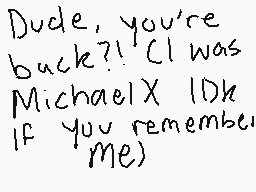 Dude, you're
back?! (I was
MichaelX IDk
If you remember
me)